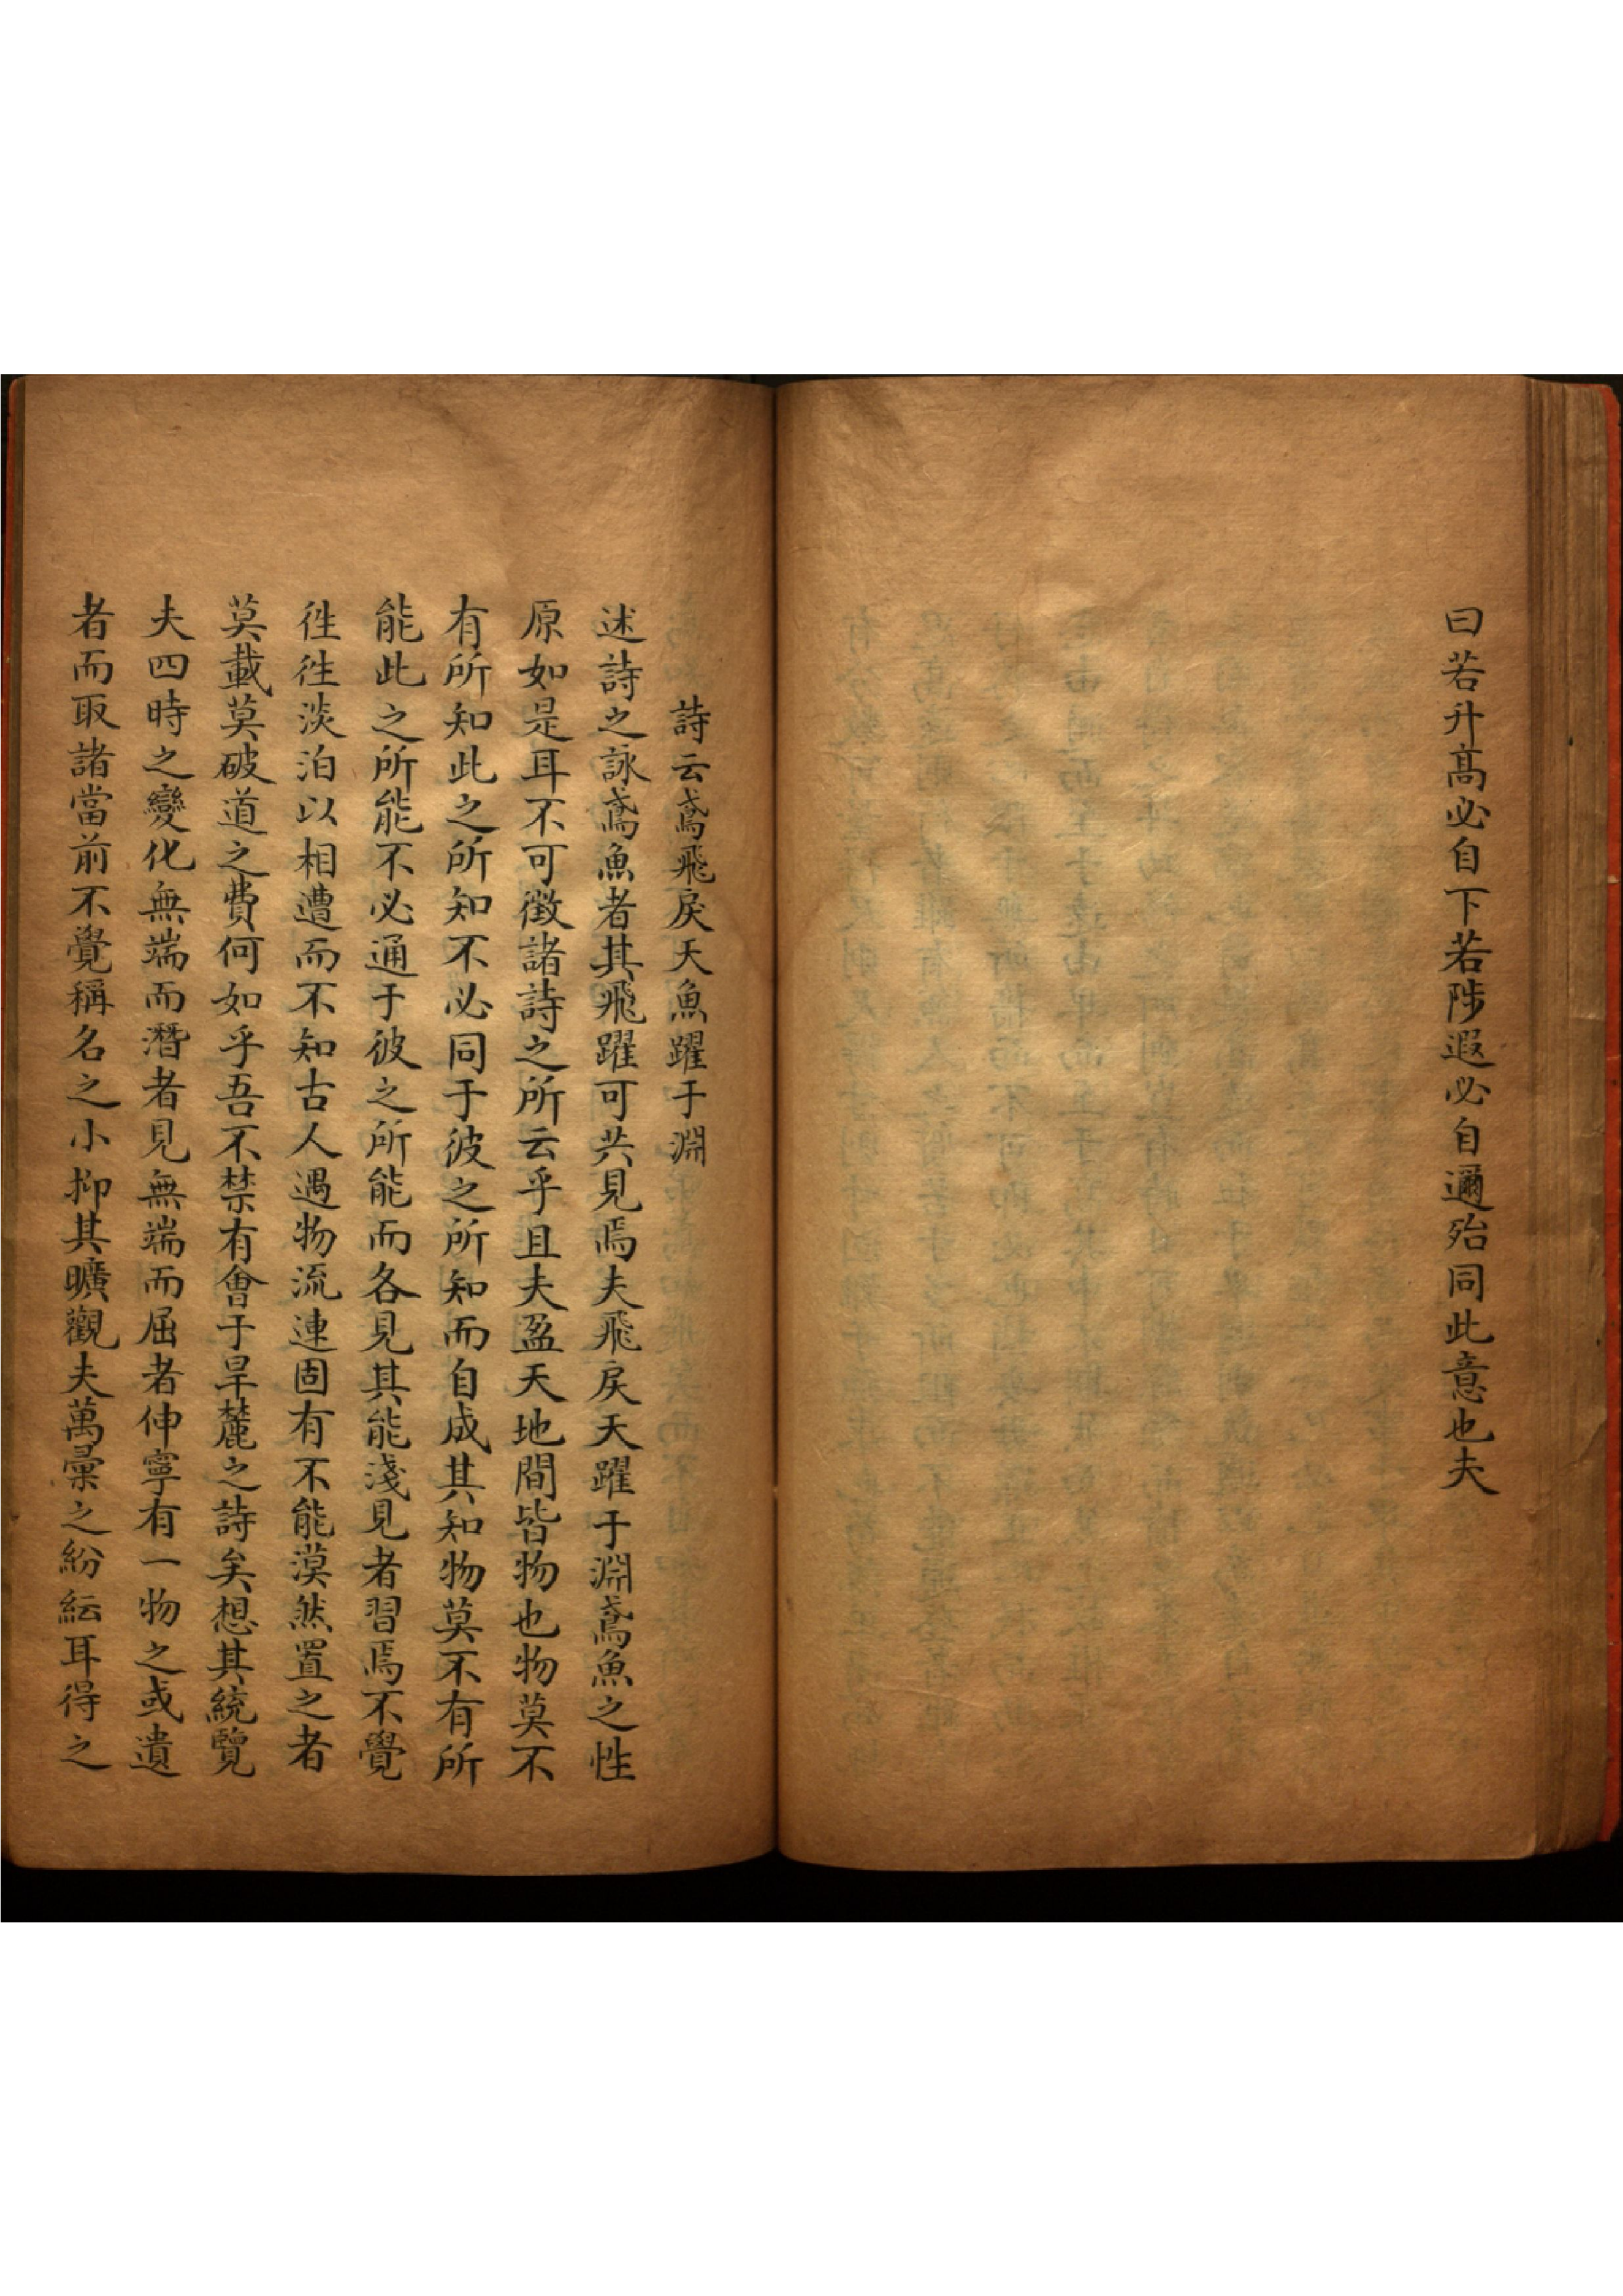 曰若升高必自下若陟遐必自邇殆同此意也夫
詩云鳶飛戾天魚躍于淵
述詩之詠鳶魚者其飛躍可共見焉夫飛戾天躍于淵鳶魚之性
原如是耳不可徵諸詩之所云乎且夫盈天地間皆物也物莫不
有所知此之所知不必同于彼之所知而自成其知物莫不有所
能此之所能不必通于彼之所能而各見其能淺見者習焉不覺
徃徃淡泊以相遭而不知古人遇物流連固有不能漠然置之者
莫載莫破道之費何如乎吾不禁有會于旱麓之詩矣想其統覽
夫四時之變化無端而潛者見無端而屈者伸寧有一物之或遺
者而取諸當前不覺稱名之小抑其曠觀夫萬彙之紛紜耳得之